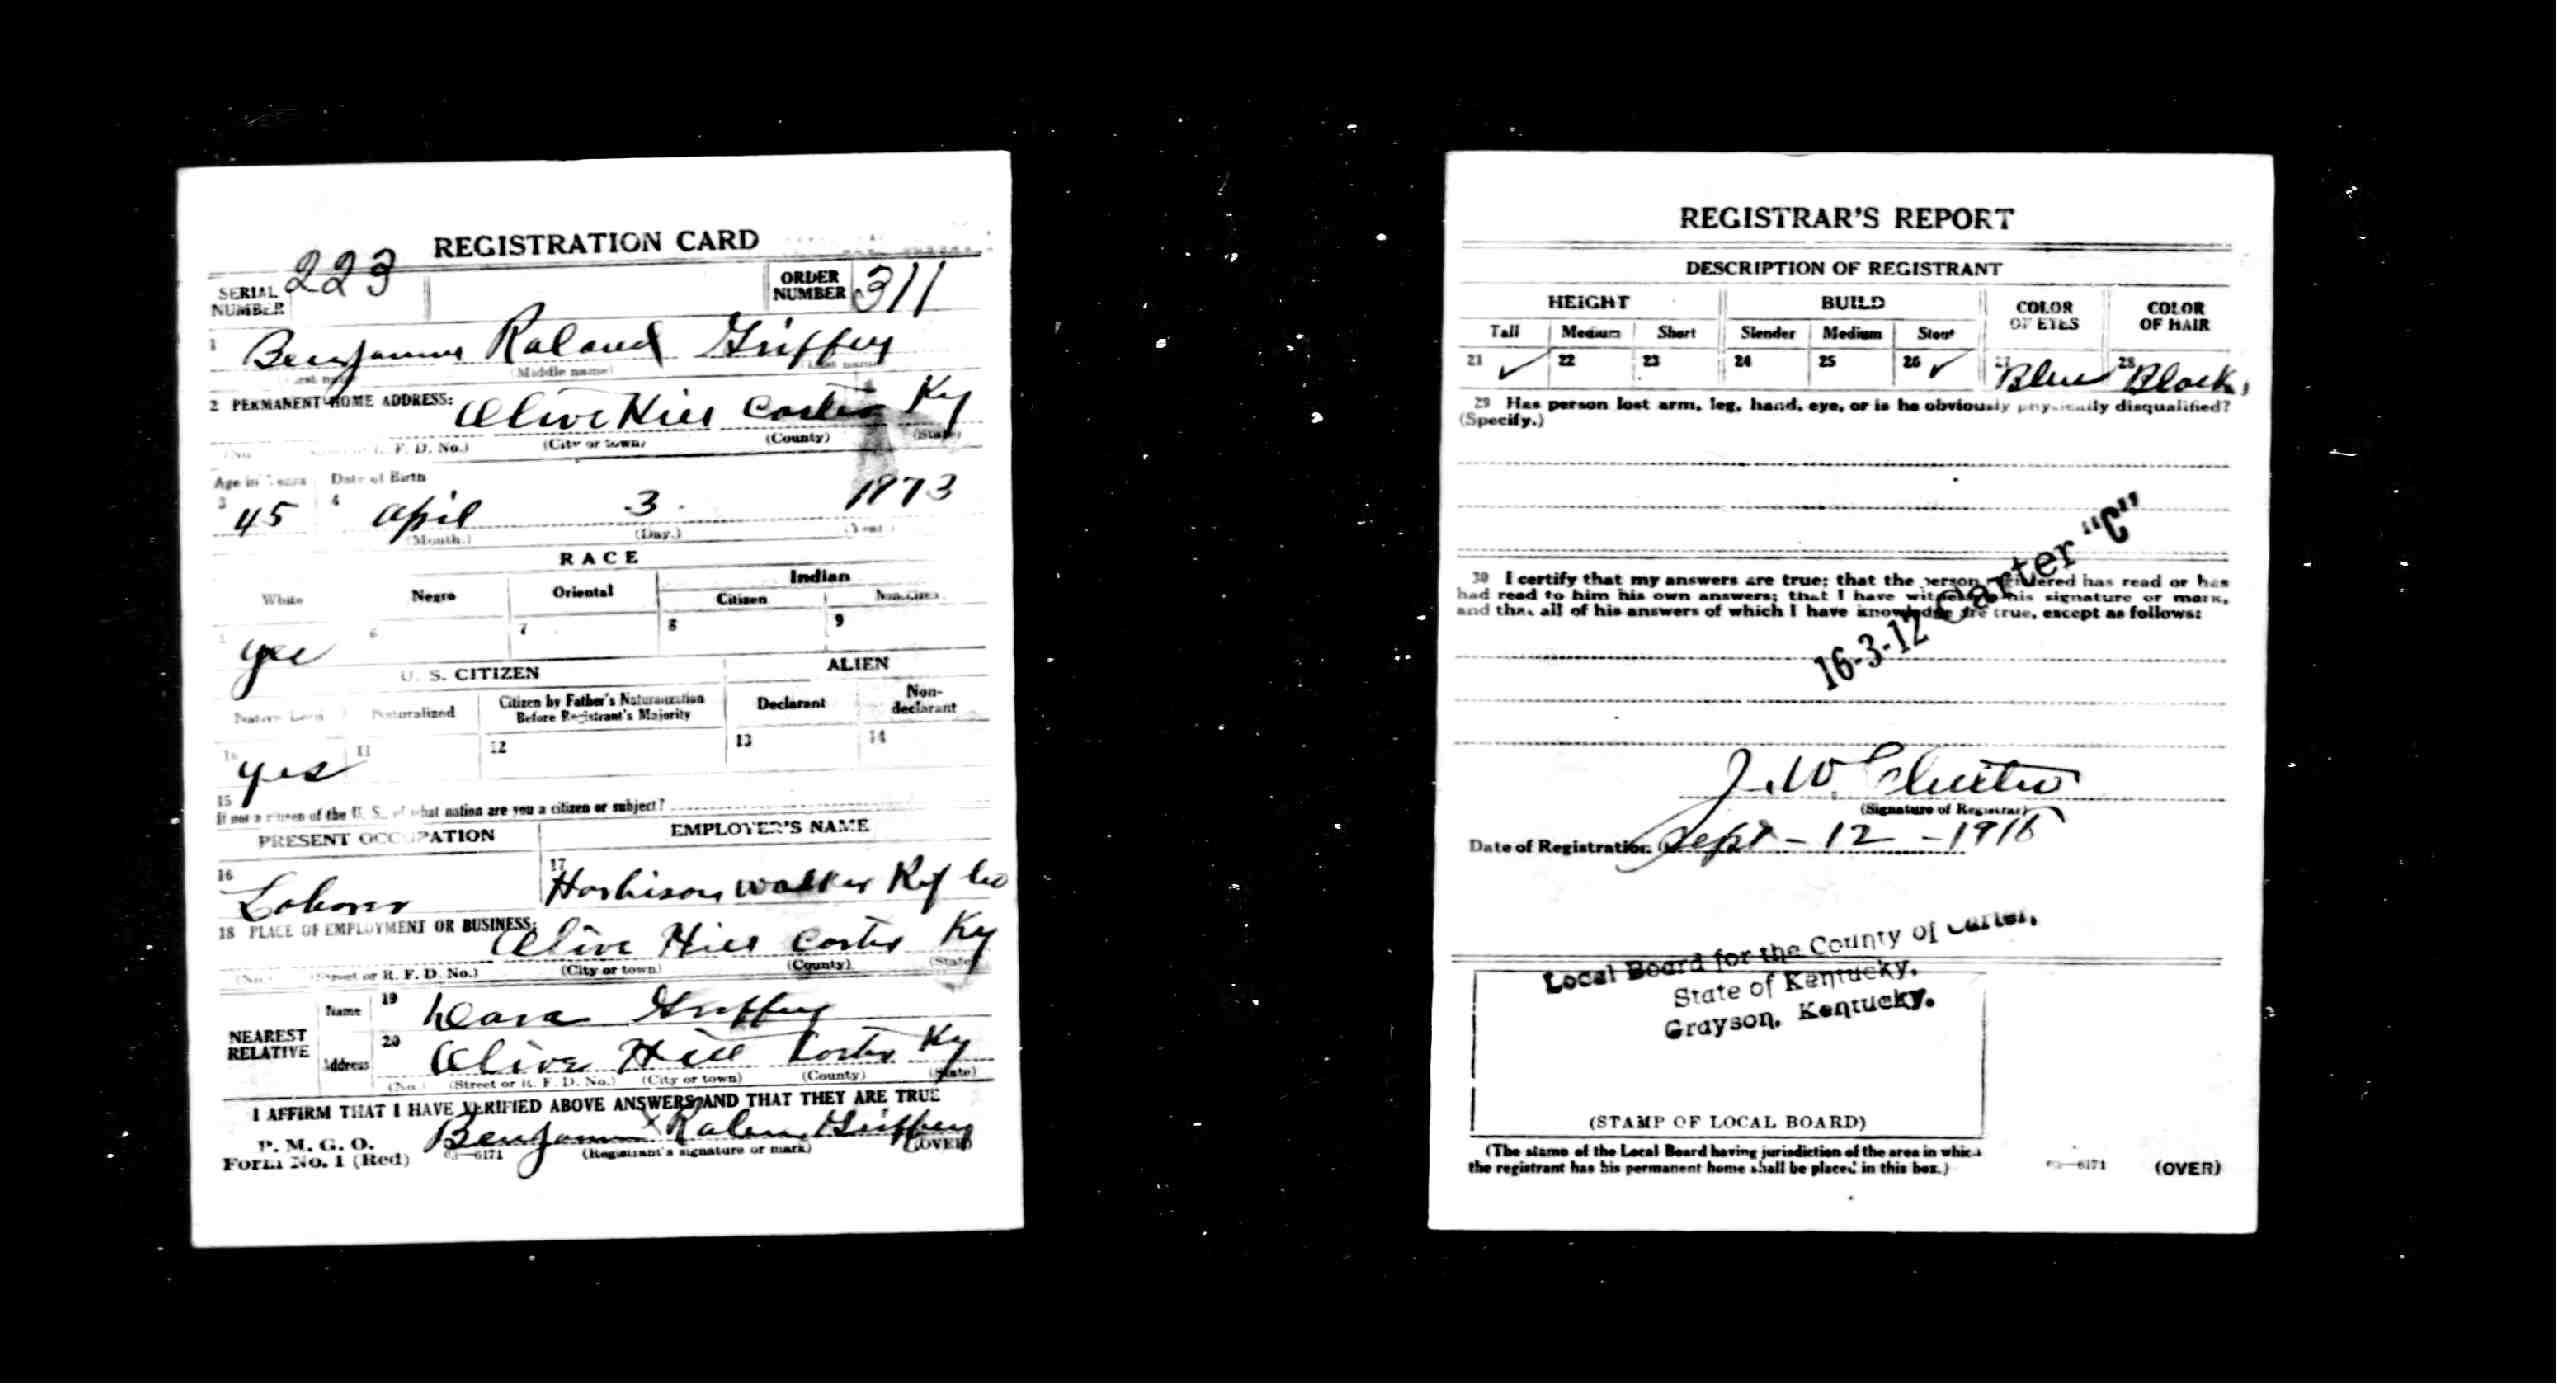 REGISTRATION CARD
SERIAL NUMBER 223
ORDER NUMBER 311
1 Benjamin Roland Griffey
(Middle name)
2 PERMANENT HOME ADDRESS: Olive Hill Carter Ky
F. D. No.) (City or town) (County) (State)
Age in Years Date of Birth
3 45 4 April 3 1873
(Month.) (Day.) (Year)
RACE
White Negro Oriental Indian
Citizen Noncitizen
yes 6 7 8 9
U. S. CITIZEN ALIEN
Native Born Naturalized Citizen by Father's Naturalization Before Registrant's Majority Declarant Non-declarant
10 yes 11 12 13 14
15
If not a citizen of the U. S., of what nation are you a citizen or subject?
PRESENT OCCUPATION EMPLOYER'S NAME
16 Laborer 17 Harbison Walker Ref Co
18 PLACE OF EMPLOYMENT OR BUSINESS: Olive Hill Carter Ky
(No.) (Street or R. F. D. No.) (City or town) (County) (State)
NEAREST RELATIVE
Name 19 Griffey
Address 20 Olive Hill Carter Ky
(No.) (Street or R. F. D. No.) (City or town) (County) (State)
I AFFIRM THAT I HAVE VERIFIED ABOVE ANSWERS AND THAT THEY ARE TRUE
P. M. G. O.
Form No. 1 (Red)
Benjamin x Griffey
03—6171 (Registrant's signature or mark) (OVER)
REGISTRAR'S REPORT
DESCRIPTION OF REGISTRANT
HEIGHT BUILD COLOR OF EYES COLOR OF HAIR
Tall Medium Short Slender Medium Stout
21 ✓ 22 23 24 25 26 ✓ 27 Blue 28 Black
29 Has person lost arm, leg, hand, eye, or is he obviously physically disqualified?
(Specify.)
30 I certify that my answers are true; that the person registered has read or has
had read to him his own answers; that I have witnessed his signature or mark,
and that all of his answers of which I have knowledge are true, except as follows:
16-3-12 Carter "C"
J. W.
(Signature of Registrar)
Date of Registration Sept - 12 - 1918
Local Board for the County of Carter,
State of Kentucky,
Grayson, Kentucky.
(STAMP OF LOCAL BOARD)
(The stamp of the Local Board having jurisdiction of the area in which
the registrant has his permanent home shall be placed in this box.)
03—6171 (OVER)